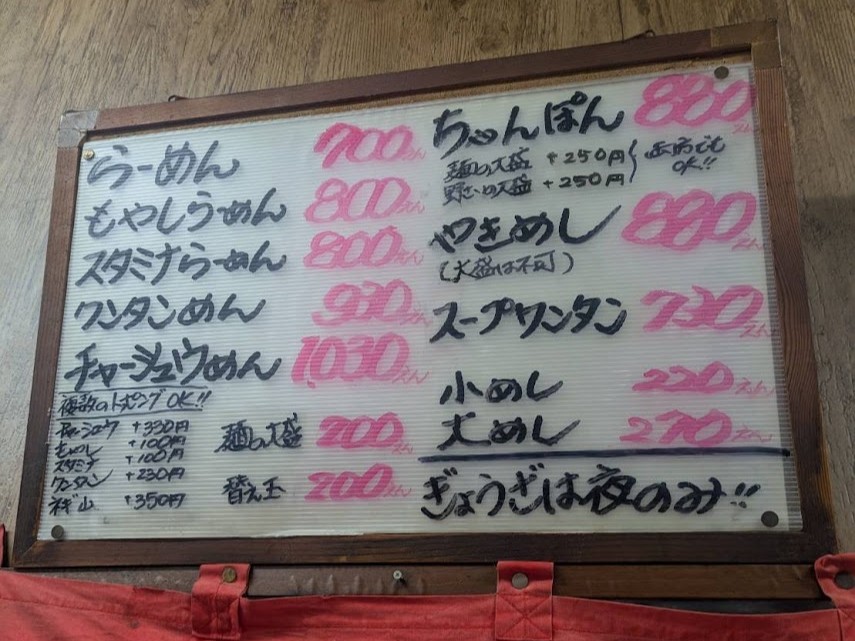 らーめん 700えん
もやしらーめん 800えん
スタミナらーめん 800えん
ワンタンめん 930えん
チャーシュウめん 1,030えん
複数のトッピングOK!!
チャーシュウ +330円
もやし +100円
スタミナ +100円
ワンタン +230円
ネギ山 +350円
麺の大盛 200えん
替え玉 200えん
ちゃんぽん 880えん
麺の大盛 +250円
野さいの大盛 +250円
両方でもOK!!
やきめし 880えん
(大盛は不可)
スープワンタン 730えん
小めし 220えん
大めし 270えん
ぎょうざは夜のみ!!